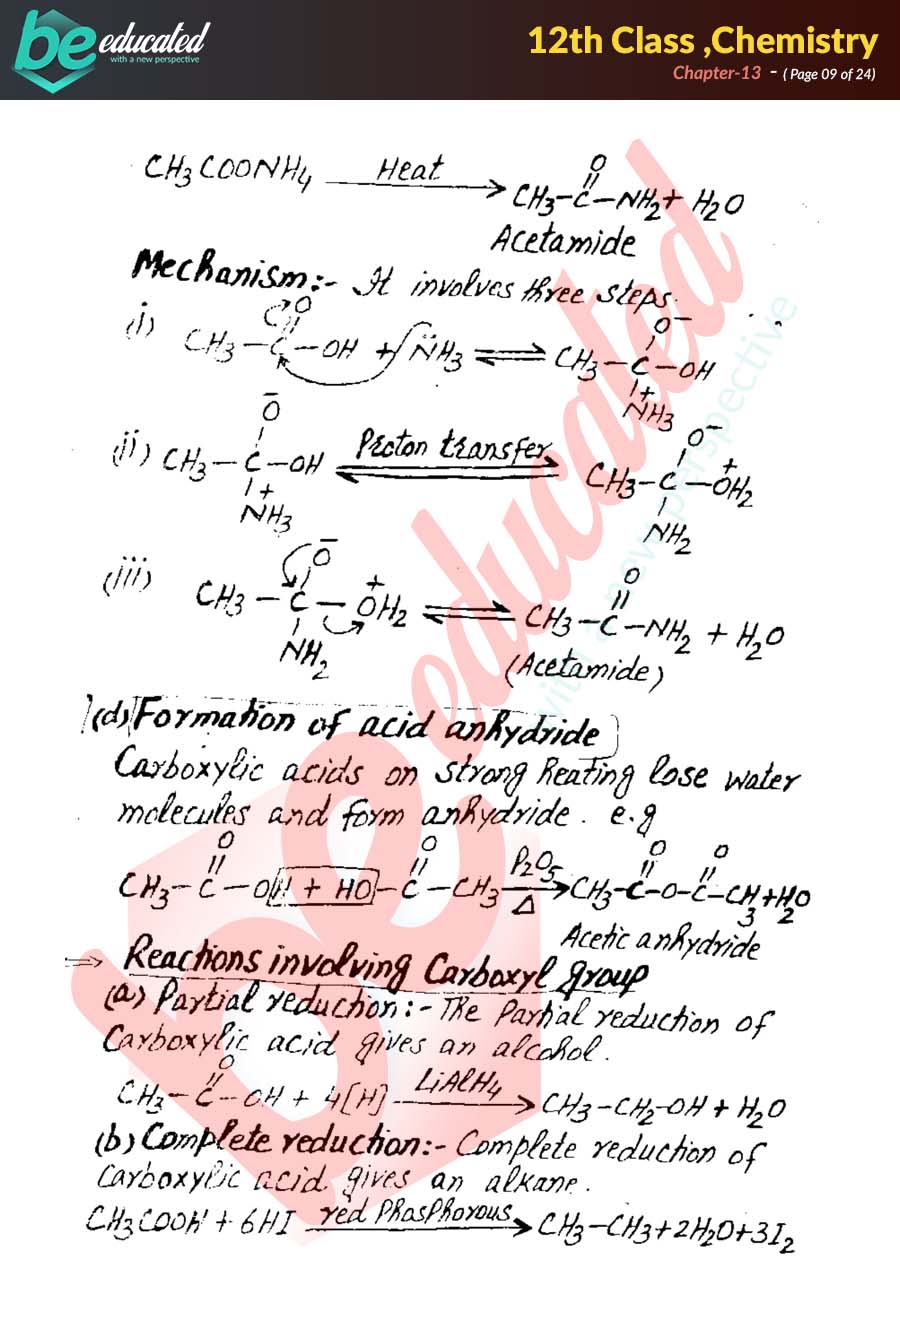 be educated
with a new perspective
12th Class ,Chemistry
Chapter-13 - ( Page 09 of 24)
CH3COONH4 Heat → CH3-C(=O)-NH2 + H2O
Acetamide
Mechanism:- It involves three steps.
(i) CH3-C(=O)-OH + N̈H3 ⇌ CH3-C(O⁻)(N⁺H3)-OH
(ii) CH3-C(O⁻)(N⁺H3)-OH Proton transfer ⇌ CH3-C(O⁻)(NH2)-O⁺H2
(iii) CH3-C(O⁻)(NH2)-O⁺H2 ⇌ CH3-C(=O)-NH2 + H2O
(Acetamide)
(d) Formation of acid anhydride
Carboxylic acids on strong heating lose water
molecules and form anhydride. e.g
CH3-C(=O)-OH + HO-C(=O)-CH3 P2O5 Δ → CH3-C(=O)-O-C(=O)-CH3+H2O
Acetic anhydride
⇒ Reactions involving Carboxyl group
(a) Partial reduction:- The Partial reduction of
Carboxylic acid gives an alcohol.
CH3-C(=O)-OH + 4[H] LiAlH4 → CH3-CH2-OH + H2O
(b) Complete reduction:- Complete reduction of
Carboxylic acid gives an alkane.
CH3COOH + 6HI red Phosphorous → CH3-CH3+2H2O+3I2
be educated
with a new perspective